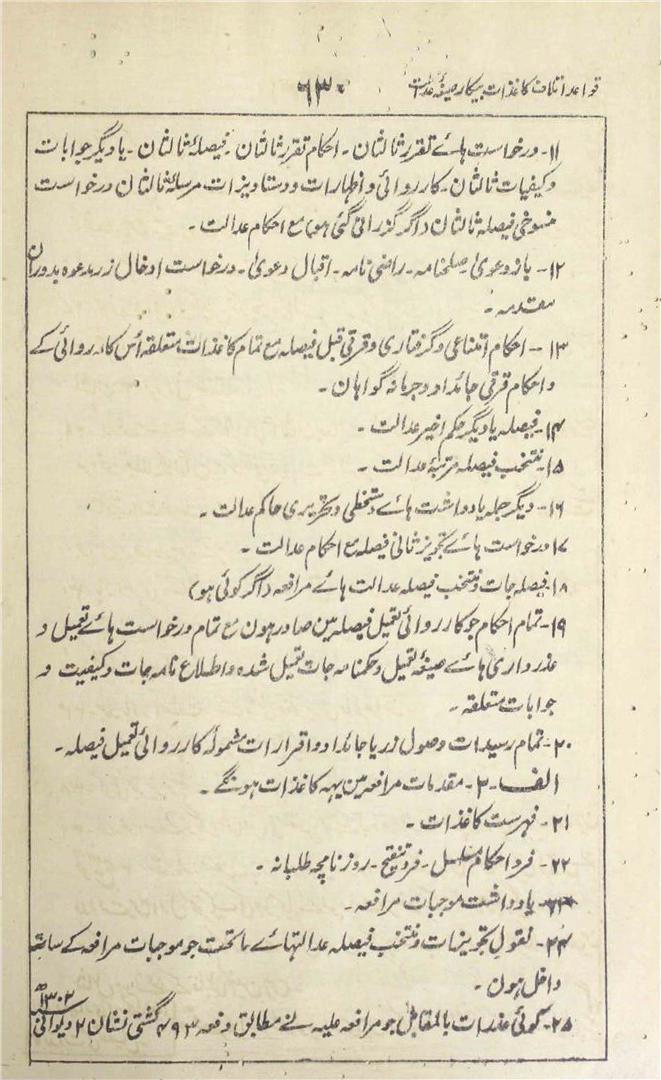 قواعد اتلاف کاغذات بیکار صیغۂ عدالت
۶۳۰
۱۱- درخواست ہائے تقرر ثالثان - احکام تقرر ثالثان - فیصلۂ ثالثان - یا دیگر جوابات
وکیفیات ثالثان - کارروائی و اظہارات و دستاویزات مرسلۂ ثالثان درخواست
منسوخی فیصلہ ثالثان (اگر گزرانی گئی ہو) مع احکام عدالت -
۱۲- بازدعویٰ صلحنامہ - راضی نامہ - اقبال دعویٰ - درخواست ادخال زر مدعوہ بدوران
مقدمہ -
۱۳- احکام امتناعی و گرفتاری و قرقی قبل فیصلہ مع تمام کاغذات متعلقہ اُس کارروائی کے
و احکام قرقی جائداد و جرمانہ گواہان -
۱۴- فیصلہ یا دیگر حکم اخیر عدالت -
۱۵- منتخب فیصلہ مرتبۂ عدالت -
۱۶- دیگر جملہ یادداشت ہائے دستخطی و تحریری حاکم عدالت -
۱۷ درخواست ہائے تجویز ثانی فیصلہ مع احکام عدالت -
۱۸- فیصلہ جات و منتخب فیصلہ عدالت ہائے مرافعہ (اگر کوئی ہو)
۱۹- تمام احکام جو کارروائی تعمیل فیصلہ مین صادر ہون مع تمام درخواست ہائے تعمیل و
عذرداری ہائے صیغۂ تعمیل و حکمنامہ جات تعمیل شدہ و اطلاع نامہ جات و کیفیت و
جوابات متعلقہ -
۲۰- تمام رسیدات وصول زر یا جائداد و اقرارات مشمولہ کارروائی تعمیل فیصلہ -
الف - ۲- مقدمات مرافعہ مین یہہ کاغذات ہونگے -
۲۱- فہرست کاغذات -
۲۲- فرد احکام مسلسل - فرد تنقیح - روزنامچہ طلبانہ -
۲۳- یادداشت موجبات مرافعہ -
۲۴- نقول تجویزات و منتخب فیصلہ عدالتہائے ماتحت جو موجبات مرافعہ کے ساتھ
داخل ہون -
۲۵- کوئی عذرات بالمقابل جو مرافعہ علیہ نے مطابق دفعہ ۴۹۳ گشتی نشان ۲ دیوانی سنہ ۱۳۰۲